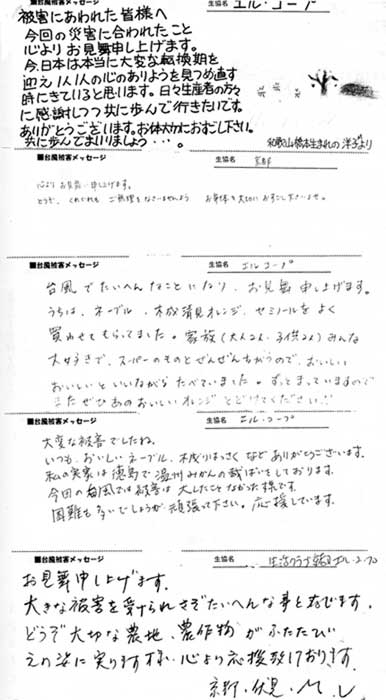 ■台風被害メッセージ
生協名 エル・コープ
被害にあわれた皆様へ
今回の災害に合われたこと
心よりお見舞申し上げます。
今、日本は本当に大変な転換期を
迎え1人1人の心のありようを見つめ直す
時にきていると思います。日々生産者の方々
に感謝しつつ共に歩んで行きたいです。
ありがとうございます。お体大切におすごし下さい。
共に歩んでまいりましょう・・・。
和歌山橋本生まれの洋子より
■台風被害メッセージ
生協名 京都
心よりお見舞い申し上げます。
どうぞ、くれぐれもご無理をなさいませんよう お身体を大切におすごし下さいませ。
■台風被害メッセージ
生協名 エルコープ
台風でたいへんなことになり、お見舞申し上げます。
うちは、ネーブル、木成清見オレンジ、セミノールをよく
買わせてもらってました。家族(大人2人、子供2人)みんな
大好きで、スーパーのものとぜんぜんちがうので、おいしい
おいしいといいながらたべていました。ずっとまっていますので
またぜひあのおいしいオレンジとどけてください!!
■台風被害メッセージ
生協名 エル・コープ
大変な被害でしたね。
いつも、おいしいネーブル、木成りはっさくなどありがとうございます。
私の実家は徳島で温州みかんの栽ばいをしております。
今回の台風では被害は大したことなかった様です。
困難も多いでしょうが、頑張って下さい。応援しています。
■台風被害メッセージ
生協名 生活クラブ京都エル・コープ
お見舞申し上げます。
大きな被害を受けられさぞたいへんな事と存じます。
どうぞ大切な農地、農作物がふたたび
元の姿に実りますよう、心より応援致しております。
京都・伏見 M.U